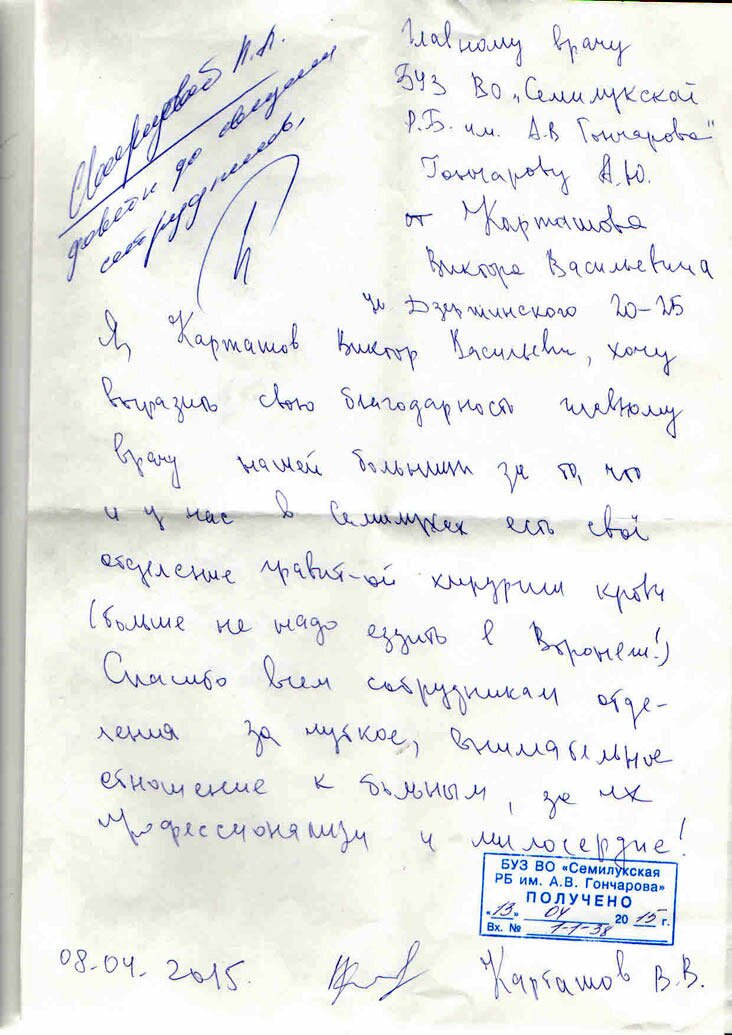 Главному врачу
БУЗ ВО „Семилукской
Р.Б. им. А.В Гончарова"
Гончарову А.Ю.
от Карташова
Виктора Васильевича
ул Дзержинского 20-25
довести до сведения
сотрудников,
Я, Карташов Виктор Васильевич, хочу
выразить свою благодарность главному
врачу нашей больницы за то, что
и у нас в Семилуках есть своё
отделение гравит-ой хирургии крови
(больше не надо ездить в Воронеж!)
Спасибо всем сотрудникам отде-
ления за чуткое, внимательное
отношение к больным, за их
профессионализм и милосердие!
БУЗ ВО «Семилукская
РБ им. А.В. Гончарова»
ПОЛУЧЕНО
«13» 04 2015 г.
Вх. № 1-1-38
08-04-2015. Карташов В.В.